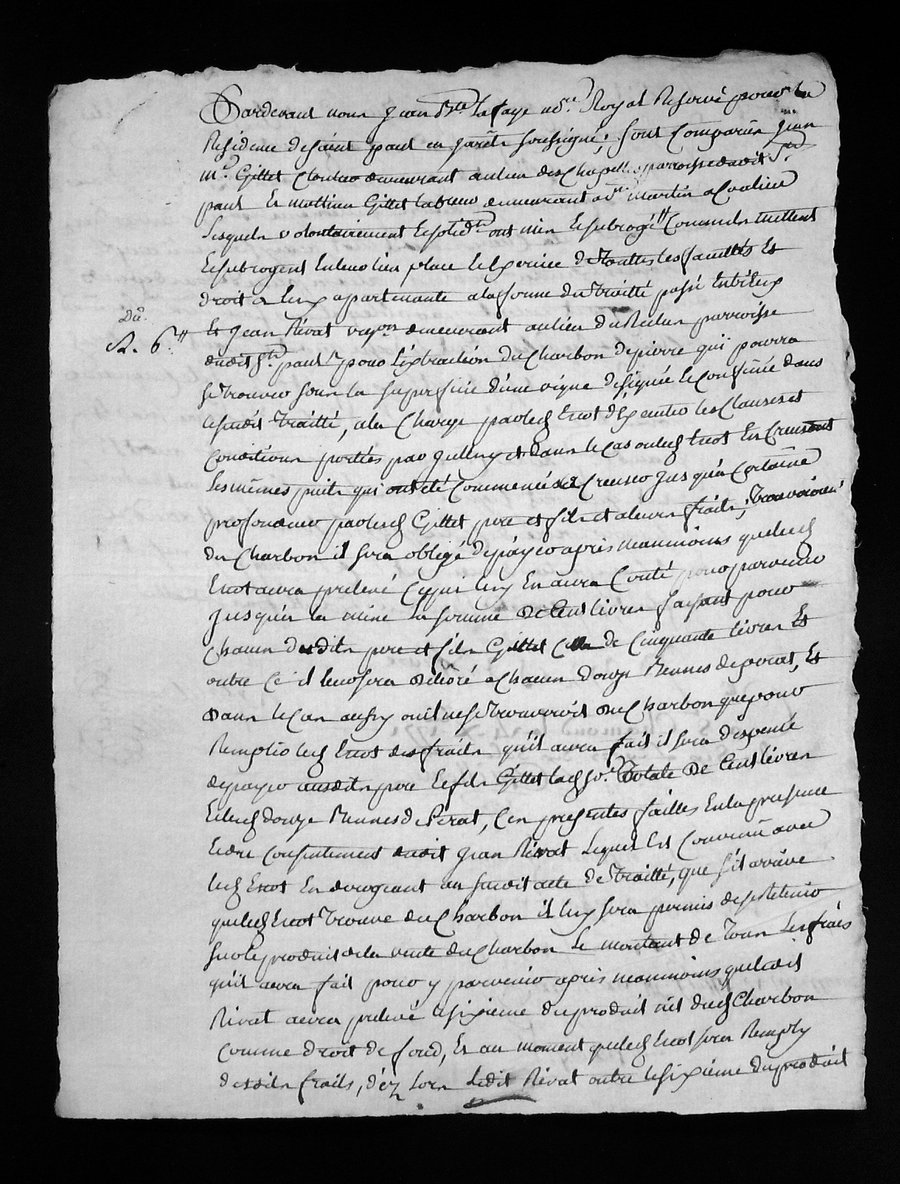 Pardevant nous Jean Bte Lafaye nore Royal Reservé pour la
Residence de saint paul en jarêts soussigné; sont Comparûs Jean
Me Gillet Cloutier demeurant au lieu des Chapelles parroisse dudit St
paul Et Mathieu Gillet laboureur demeurant a St Martin a Coalieu
Lesquels volontairement ont mis Et subrogé Comme ils mettent
Et subrogent En leur lieu place Et de Toutes les facultés Et
droit a Eux apartenants a la forme du traitté passé Entr'Eux
Et Jean Rivat vayon demeurant au lieu du Reclus parroisse
Du.
R. 6.tt
dudit St paul pour L'extraction du Charbon de pierre qui pourra
se trouver sous la superficie d'une vigne designée Et Confinée dans
le susdit Traitté, a la Charge par led Ericot d'Executer les Clauses et
Conditions portées par Et dans le cas ou led Ericot En Creusant
Les mêmes puits qui ont été Commencés a Creuser jusqu'a Certaine
profondeur par lesd Gillet pere et fils et a leurs fraits, Trouveroient
du Charbon il sera obligé de payer après neanmoins que led
Ericot aura prelevé Ce qui luy En aura Couté pour parvenir
jusqu'a la mine la somme de Cent livres faisant pour
Chacun desdits pere et fils Gillet Celle de Cinquante livres Et
outre Ce il leur sera deliuré a Chacun douze Bennes de perat, Et
dans le Cas aussy ou il ne se trouveroit du Charbon que pour
Remplir led Ericot des fraits qu'il aura fait il sera dispensé
de payer auxdits pere Et fils Gillet lad so. Totale de Cent livres
Et lesd douze Bennes de Perat, Ces presentes faittes En la presence
Et du Consentement dudit Jean Rivat Lequel Est Convenû avec
led Ericot En derogeant au susdit acte de Traitté, que s'il arrive
que led Ericot trouve du Charbon il luy sera permis de se Retenir
sur le produit de la vente du Charbon Le montant de Tous Les frais
qu'il aura fait pour y parvenir après neanmoins que ledit
Rivat aura prelevé le sixieme du produit net dud Charbon
Comme droit de fond, Et au moment que led Ericot sera Remply
desdits fraits, dez Lors Ledit Rivat outre le sixième du produit